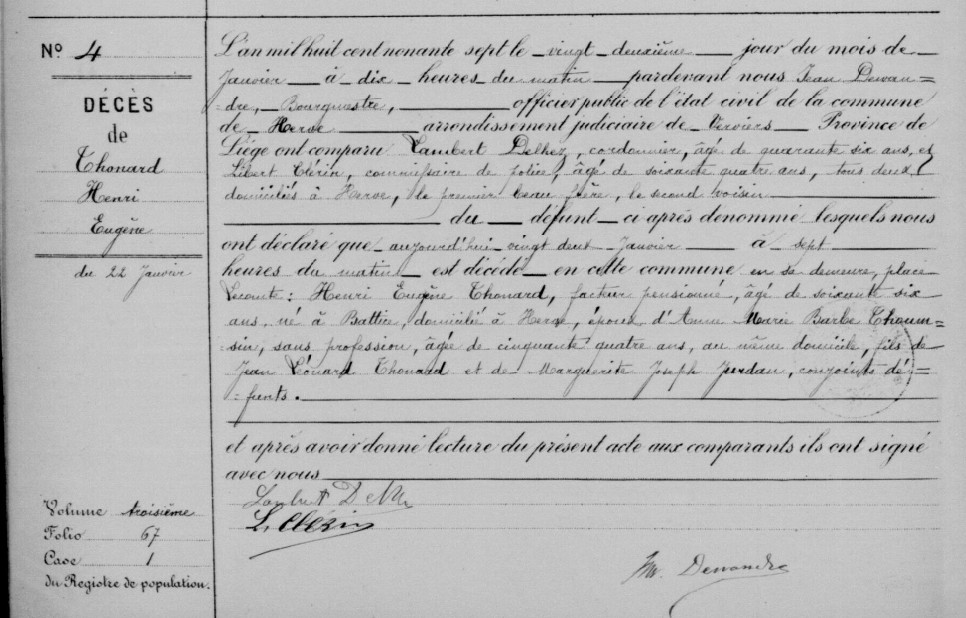 No 4
DÉCÈS
de
Thonard
Henri
Eugène
du 22 Janvier
L'an mil huit cent nonante sept le vingt deuxième jour du mois de
Janvier à dix heures du matin pardevant nous Jean Dewan=
=dre, Bourgmestre, officier public de l'état civil de la commune
de Herve arrondissement judiciaire de Verviers Province de
Liége ont comparu Lambert Delhez, cordonnier, âgé de quarante six ans, et
Libert Clérin, commissaire de police, âgé de soixante quatre ans, tous deux
domiciliés à Herve, le premier beau frère, le second voisin
du défunt ci après dénommé lesquels nous
ont déclaré que aujourd'hui vingt deux Janvier à sept
heures du matin est décédé en cette commune en sa demeure, place
Lecomte: Henri Eugène Thonard, facteur pensionné, âgé de soixante six
ans, né à Battice, domicilié à Herve, époux d'Anne Marie Barbe Thoum=
sin, sans profession, âgée de cinquante quatre ans, au même domicile, fils de
Jean Léonard Thonard et de Marguerite Joseph Jurdan, conjoints dé=
=funts.
et après avoir donné lecture du présent acte aux comparants ils ont signé
avec nous
Lambert Delhez
L. Clérin
Dewandre
Volume troisième
Folio 67
Case 1
du Registre de population.